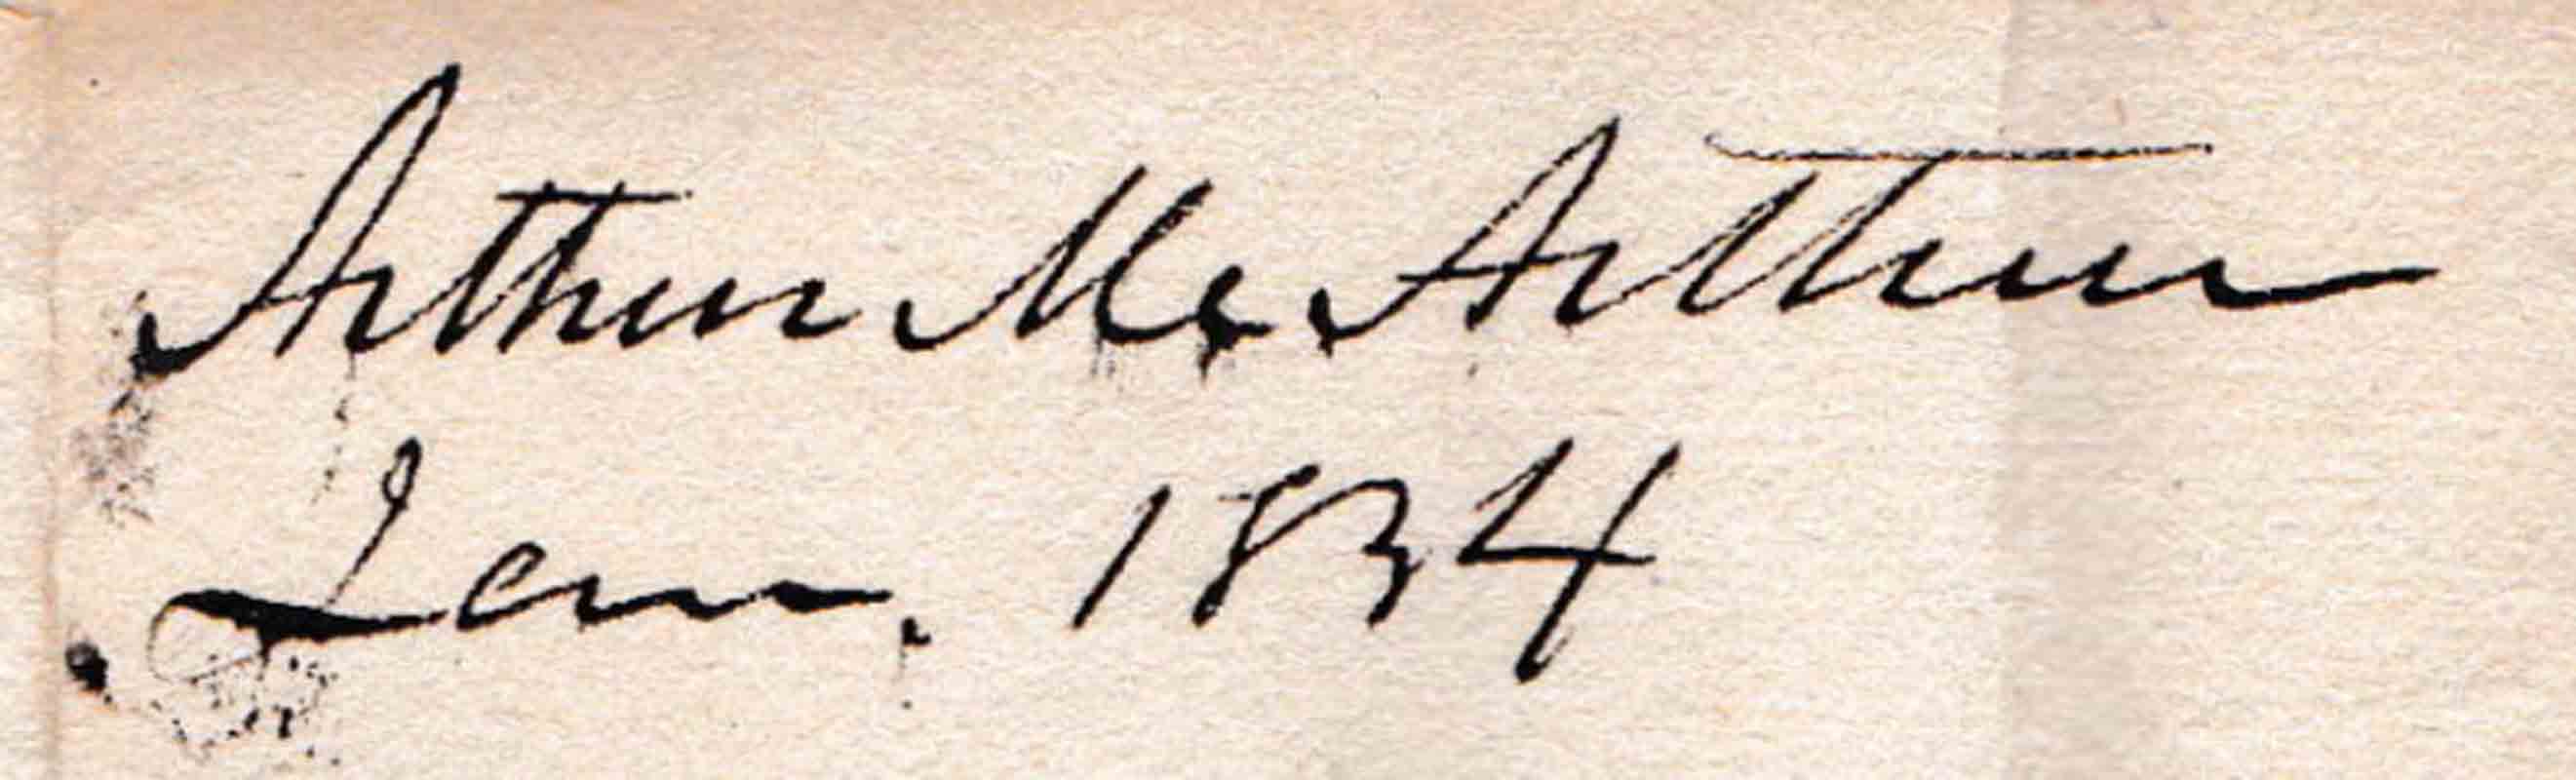 Arthur Mc.Arthur
Jan. 1834